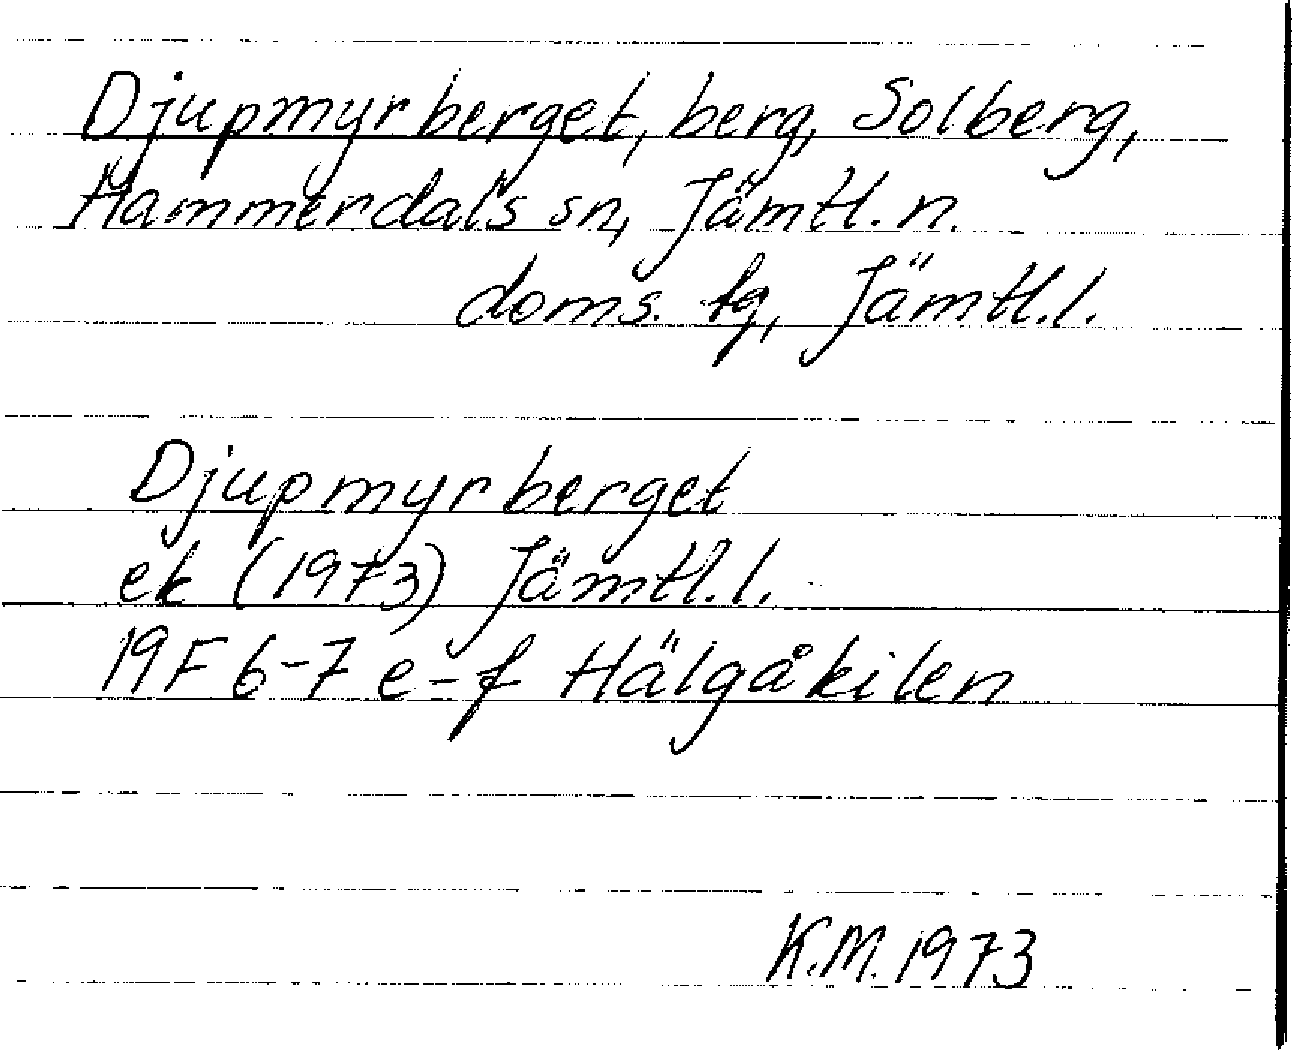 Djupmyrberget, berg, Solberg,
Hammerdals sn, Jämtl. n.
doms. tg, Jämtl. l.
Djupmyrberget
ek (1973) Jämtl. l.
19F 6-7 e-f Hälgåkilen
K.M. 1973